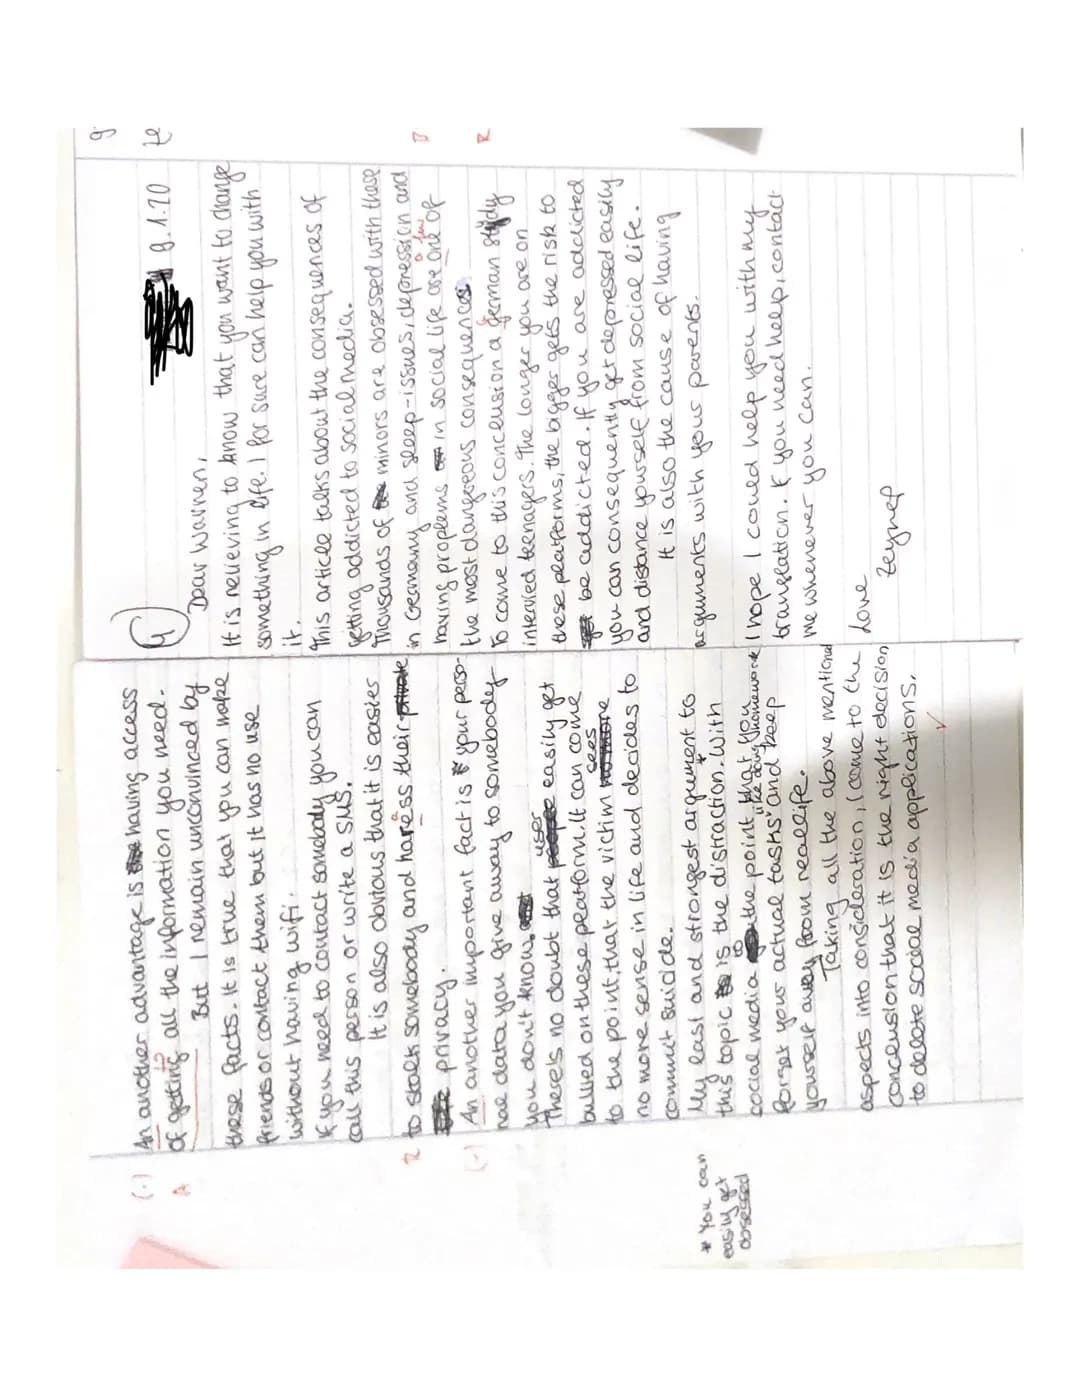 (-) An another advantage is having access
A of getting all the information you need.
to
But I remain unconvinced by
these facts. It is true that you can make
friends or contact them but it has no use
without having wifi.
If you need to contact somebody you can
call this person or write a SMS.
It is also obvious that it is easier
R to stalk somebody and haress their
a
privacy.
(-) An another important fact is your perso-
nal data you give away to somebody
you don't know.
There is no doubt that user easily get
bullied on these platform. It can come
to the point, that the victim sees
no more sense in life and decides to
commit suicide.
My last and strongest argument to
this topic is the distraction. With *
social media to the point that you
forget your actual tasks "like doing homework" and keep
yourself away from reallife.
Taking all the above mentioned
aspects into consideration, I come to the
conclusion that it is the right decision
to delete social media applications.
✓
* You can
easily get
obsessed
4)
9.1.20
Dear Warren,
It is relieving to know that you want to change
something in life. I for sure can help you with
it.
This article talks about the consequences of
getting addicted to social media.
Thousands of minors are obsessed with these
in Germany and sleep-issues, depression and
having proplems in social life are one of
a few
the most dangereous consequences.
To come to this conclusion a german study
G
intervied teenagers. The longer you are on
these platforms, the bigger gets the risk to
be addicted. If you are addicted
you can consequently get depressed easily
and distance yourself from social life.
It is also the cause of having
arguments with your parents.
I hope I could help you with my
translation. If you need help, contact
me whenever you can.
Love
Zeynep
g
te
R